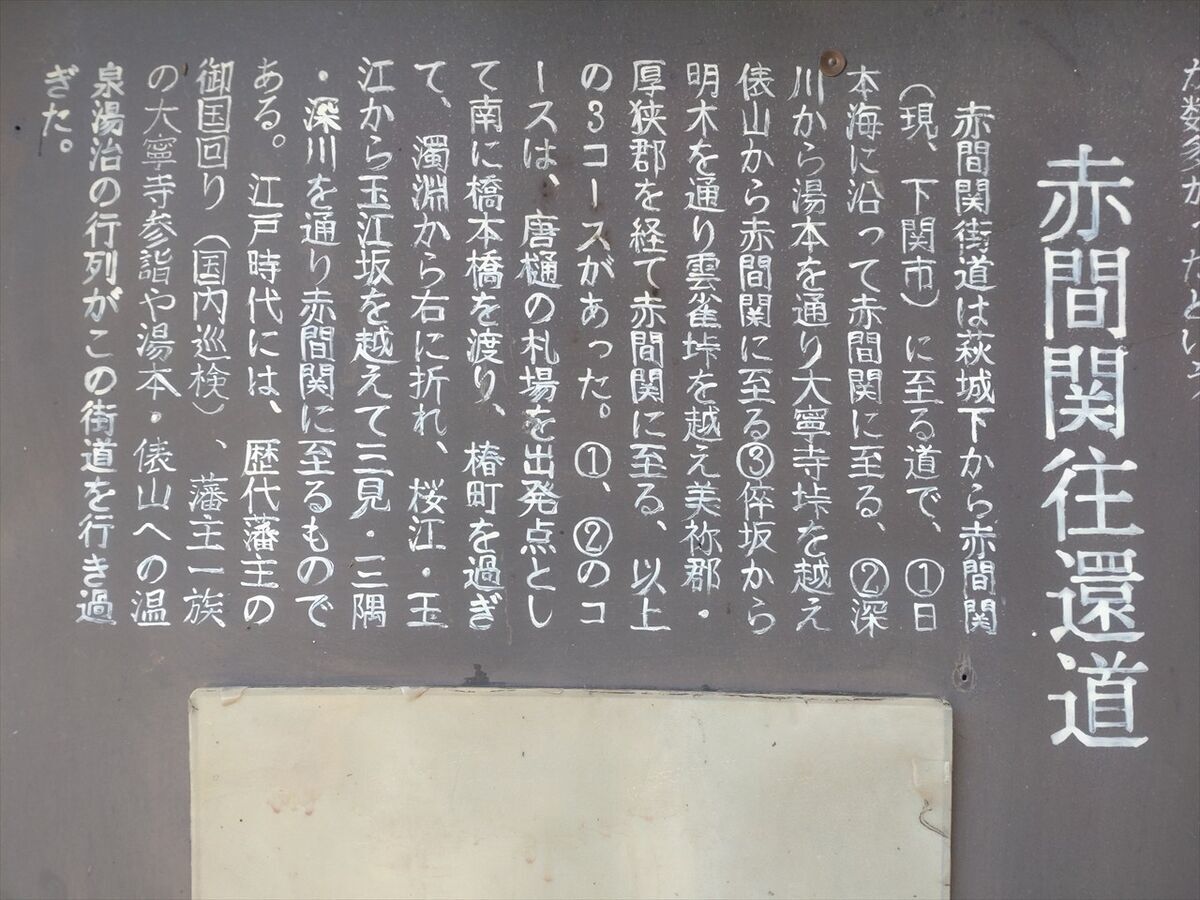 赤間関往還道
赤間関街道は萩城下から赤間関
(現、下関市)に至る道で、①日
本海に沿って赤間関に至る、②深
川から湯本を通り大寧寺峠を越え
俵山から赤間関に至る③悴坂から
明木を通り雲雀峠を越え美祢郡・
厚狭郡を経て赤間関に至る、以上
の3コースがあった。①、②のコ
ースは、唐樋の札場を出発点とし
て南に橋本橋を渡り、椿町を過ぎ
て、濁淵から右に折れ、桜江・玉
江から玉江坂を越えて三見・三隅
・深川を通り赤間関に至るもので
ある。江戸時代には、歴代藩主の
御国回り(国内巡検)、藩主一族
の大寧寺参詣や湯本・俵山への温
泉湯治の行列がこの街道を行き過
ぎた。